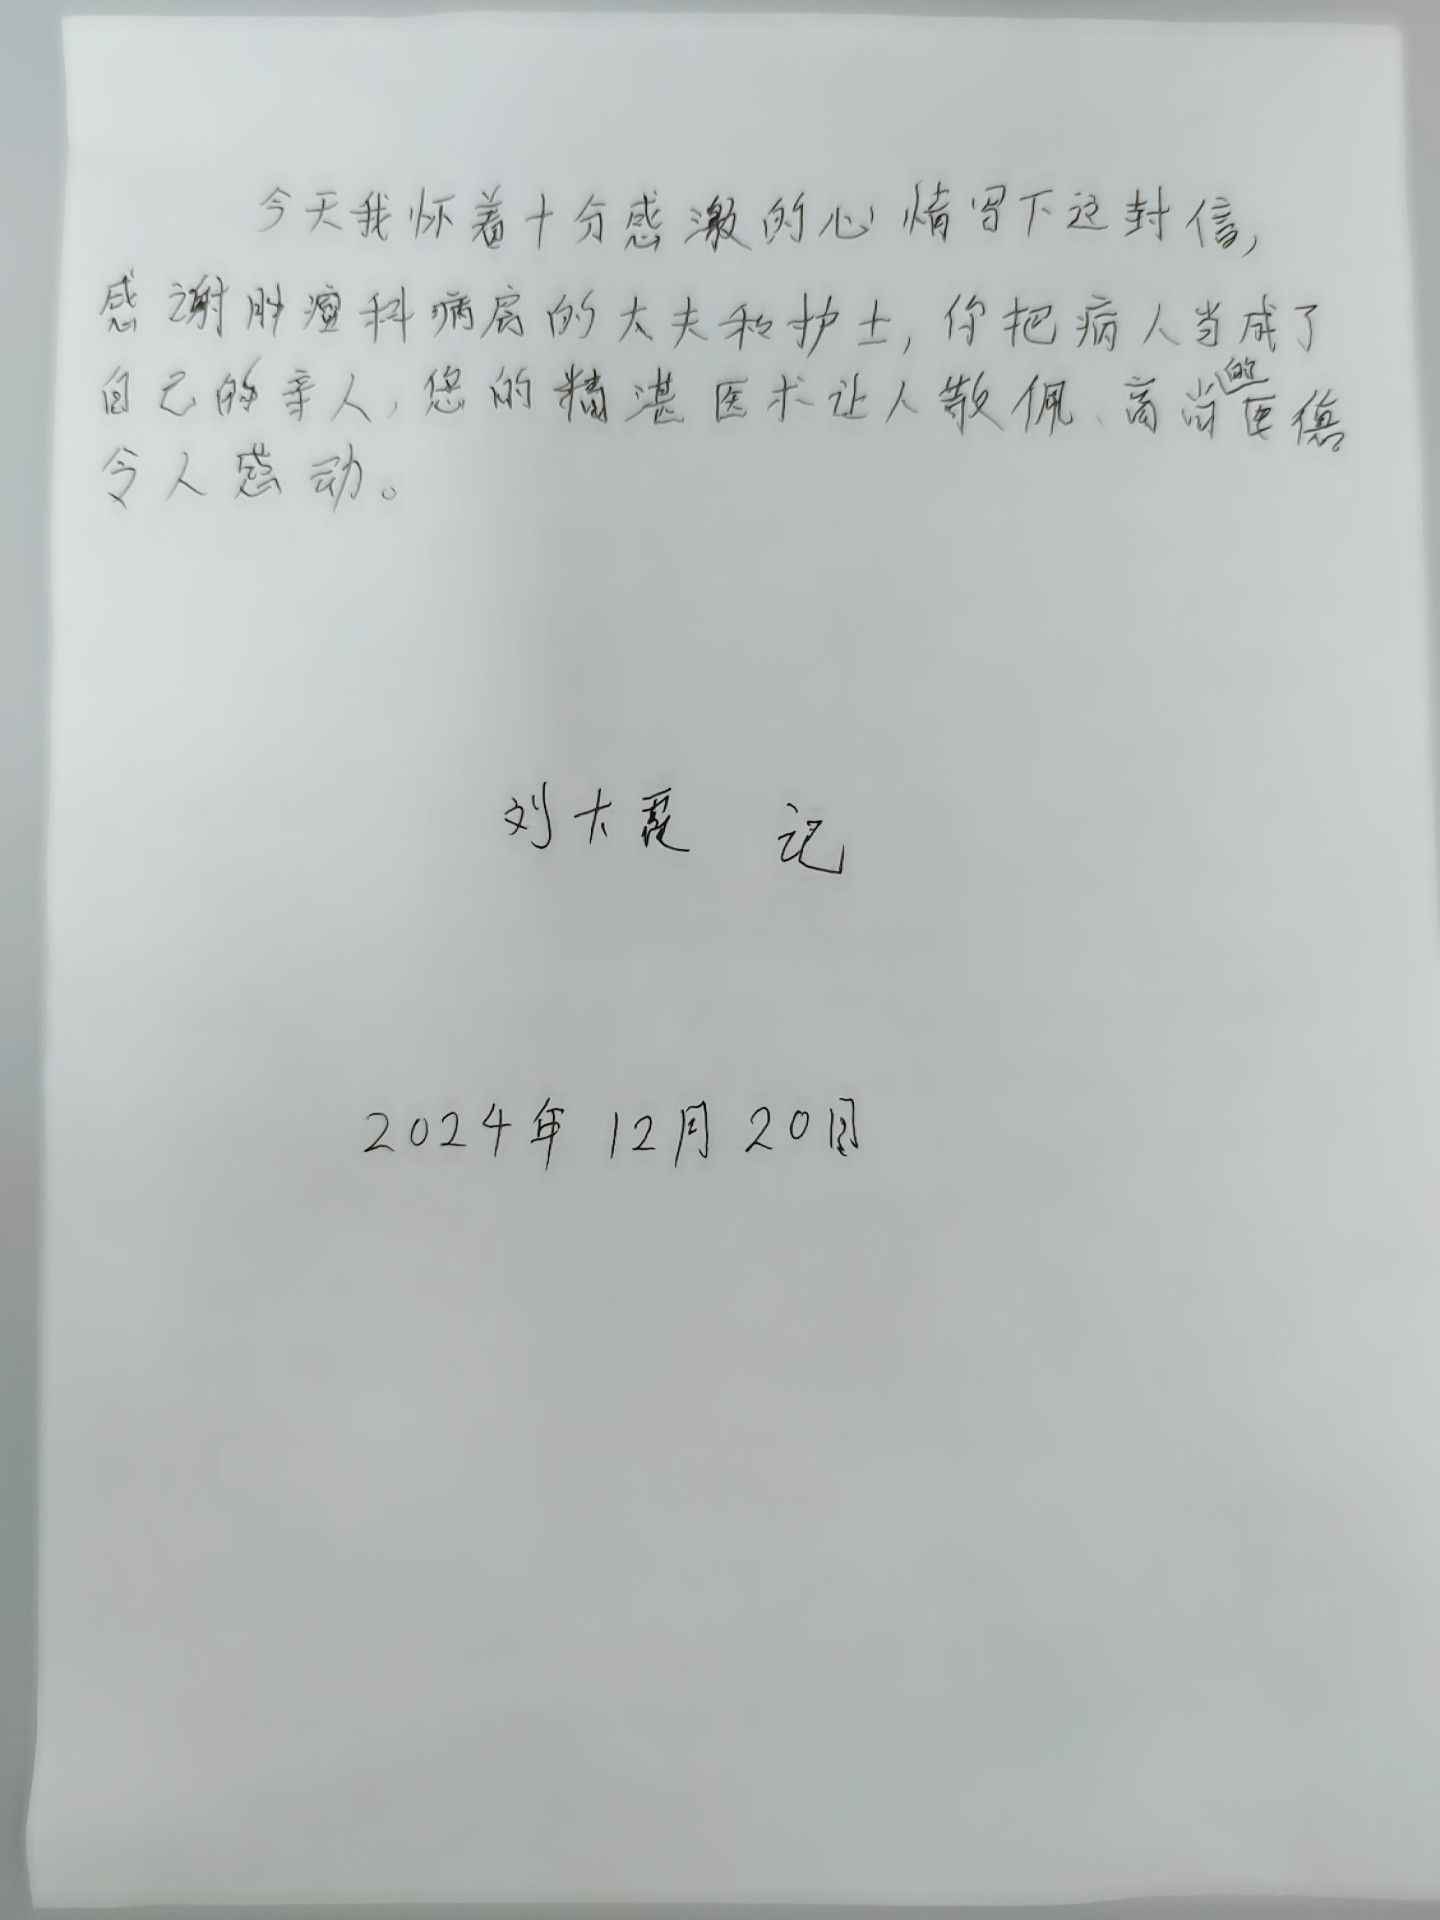 今天我怀着十分感激的心情写下这封信，
感谢肿瘤科病房的大夫和护士，你把病人当成了
自己的亲人，您的精湛医术让人敬佩、高尚的医德
令人感动。
刘大霞 记
2024年12月20日